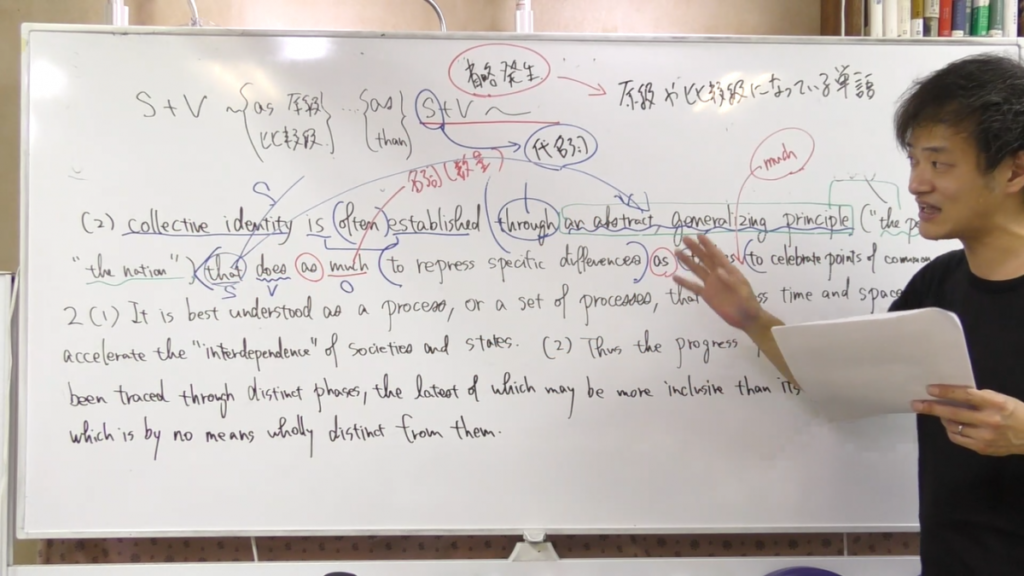 省略発生
原級や比較級になっている単語
S+V 〜 {as 原級 … {as} S+V 〜
比較級. than
代名詞
名詞(数量)
much
S
(2) collective identity is (often) established (through an abstract, generalizing principle ("the
"the nation") (that does as much (to repress specific differences) as (to celebrate points of common
S V O
2 (1) It is best understood as a process, or a set of processes, time and space
accelerate the "interdependence" of societies and states. (2) Thus the progress
been traced through distinct phases, the latest of which may be more inclusive than its
which is by no means wholly distinct from them.